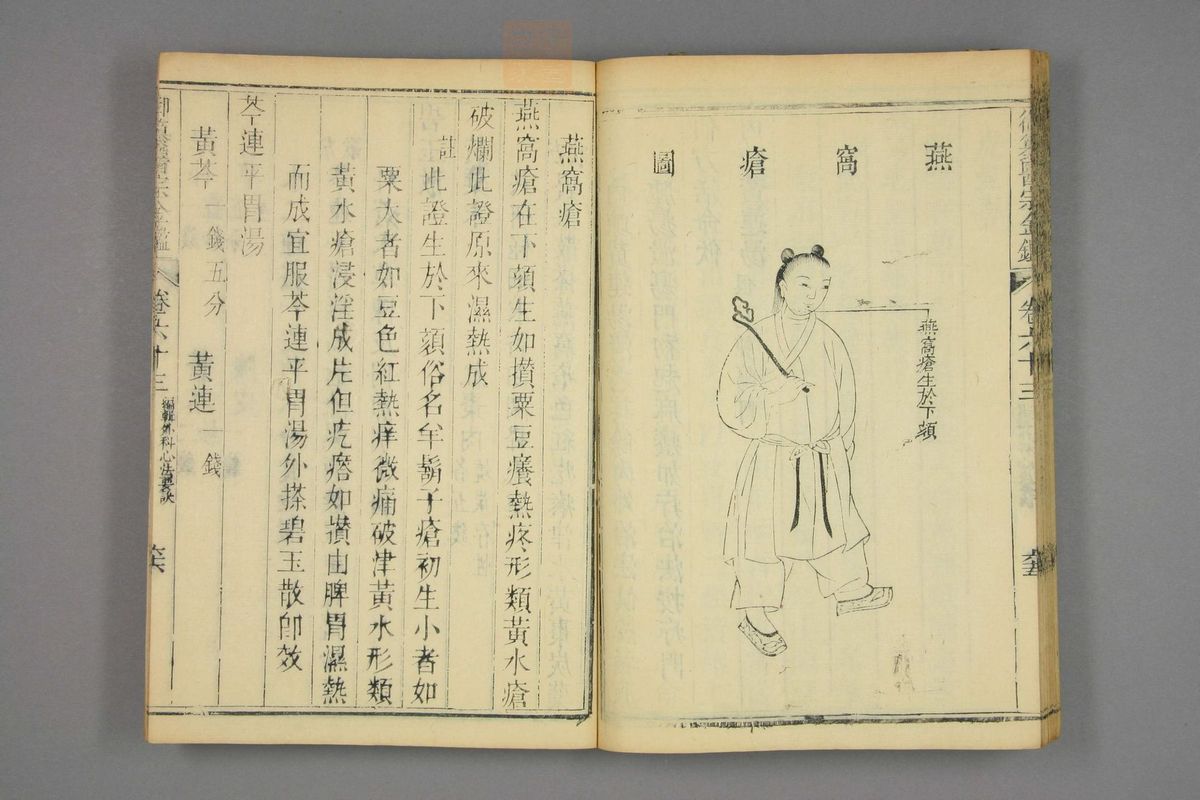 御纂醫宗金鑑
卷六十三
燕窩瘡圖
燕窩瘡生於下頦
燕窩瘡
燕窩瘡在下頦生如攢粟豆癢熱疼形類黃水瘡
破爛此證原來濕熱成
註此證生於下頦俗名羊鬍子瘡初生小者如
粟大者如豆色紅熱痒微痛破津黃水形類
黃水瘡浸淫成片但疙瘩如攢由脾胃濕熱
而成宜服芩連平胃湯外搽碧玉散卽效
芩連平胃湯
黃芩一錢五分 黃連一錢
御纂醫宗金鑑
卷六十三
編輯外科心法要訣